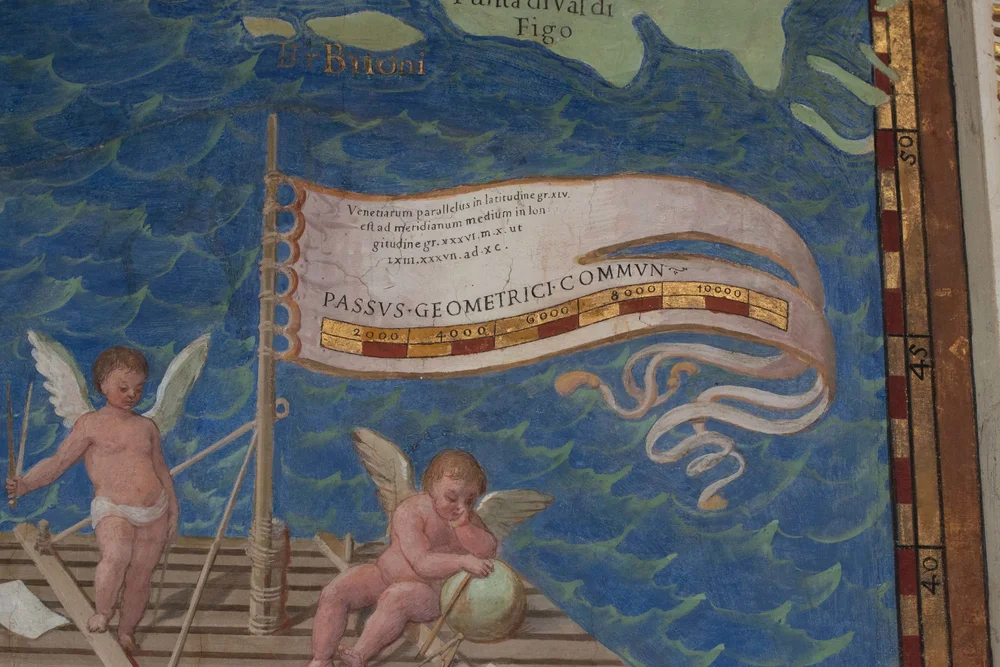 Punta di Val di
Figo
Br Brioni
Venetiarum parallelus in latitudine gr. XLV.
est ad meridianum medium in lon
gitudine gr. XXXVI. m. X. ut
LXIII. XXXVII. ad. XC.
PASSVS · GEOMETRICI · COMMVN
2000 4000 6000 8000 10000
50
45
40